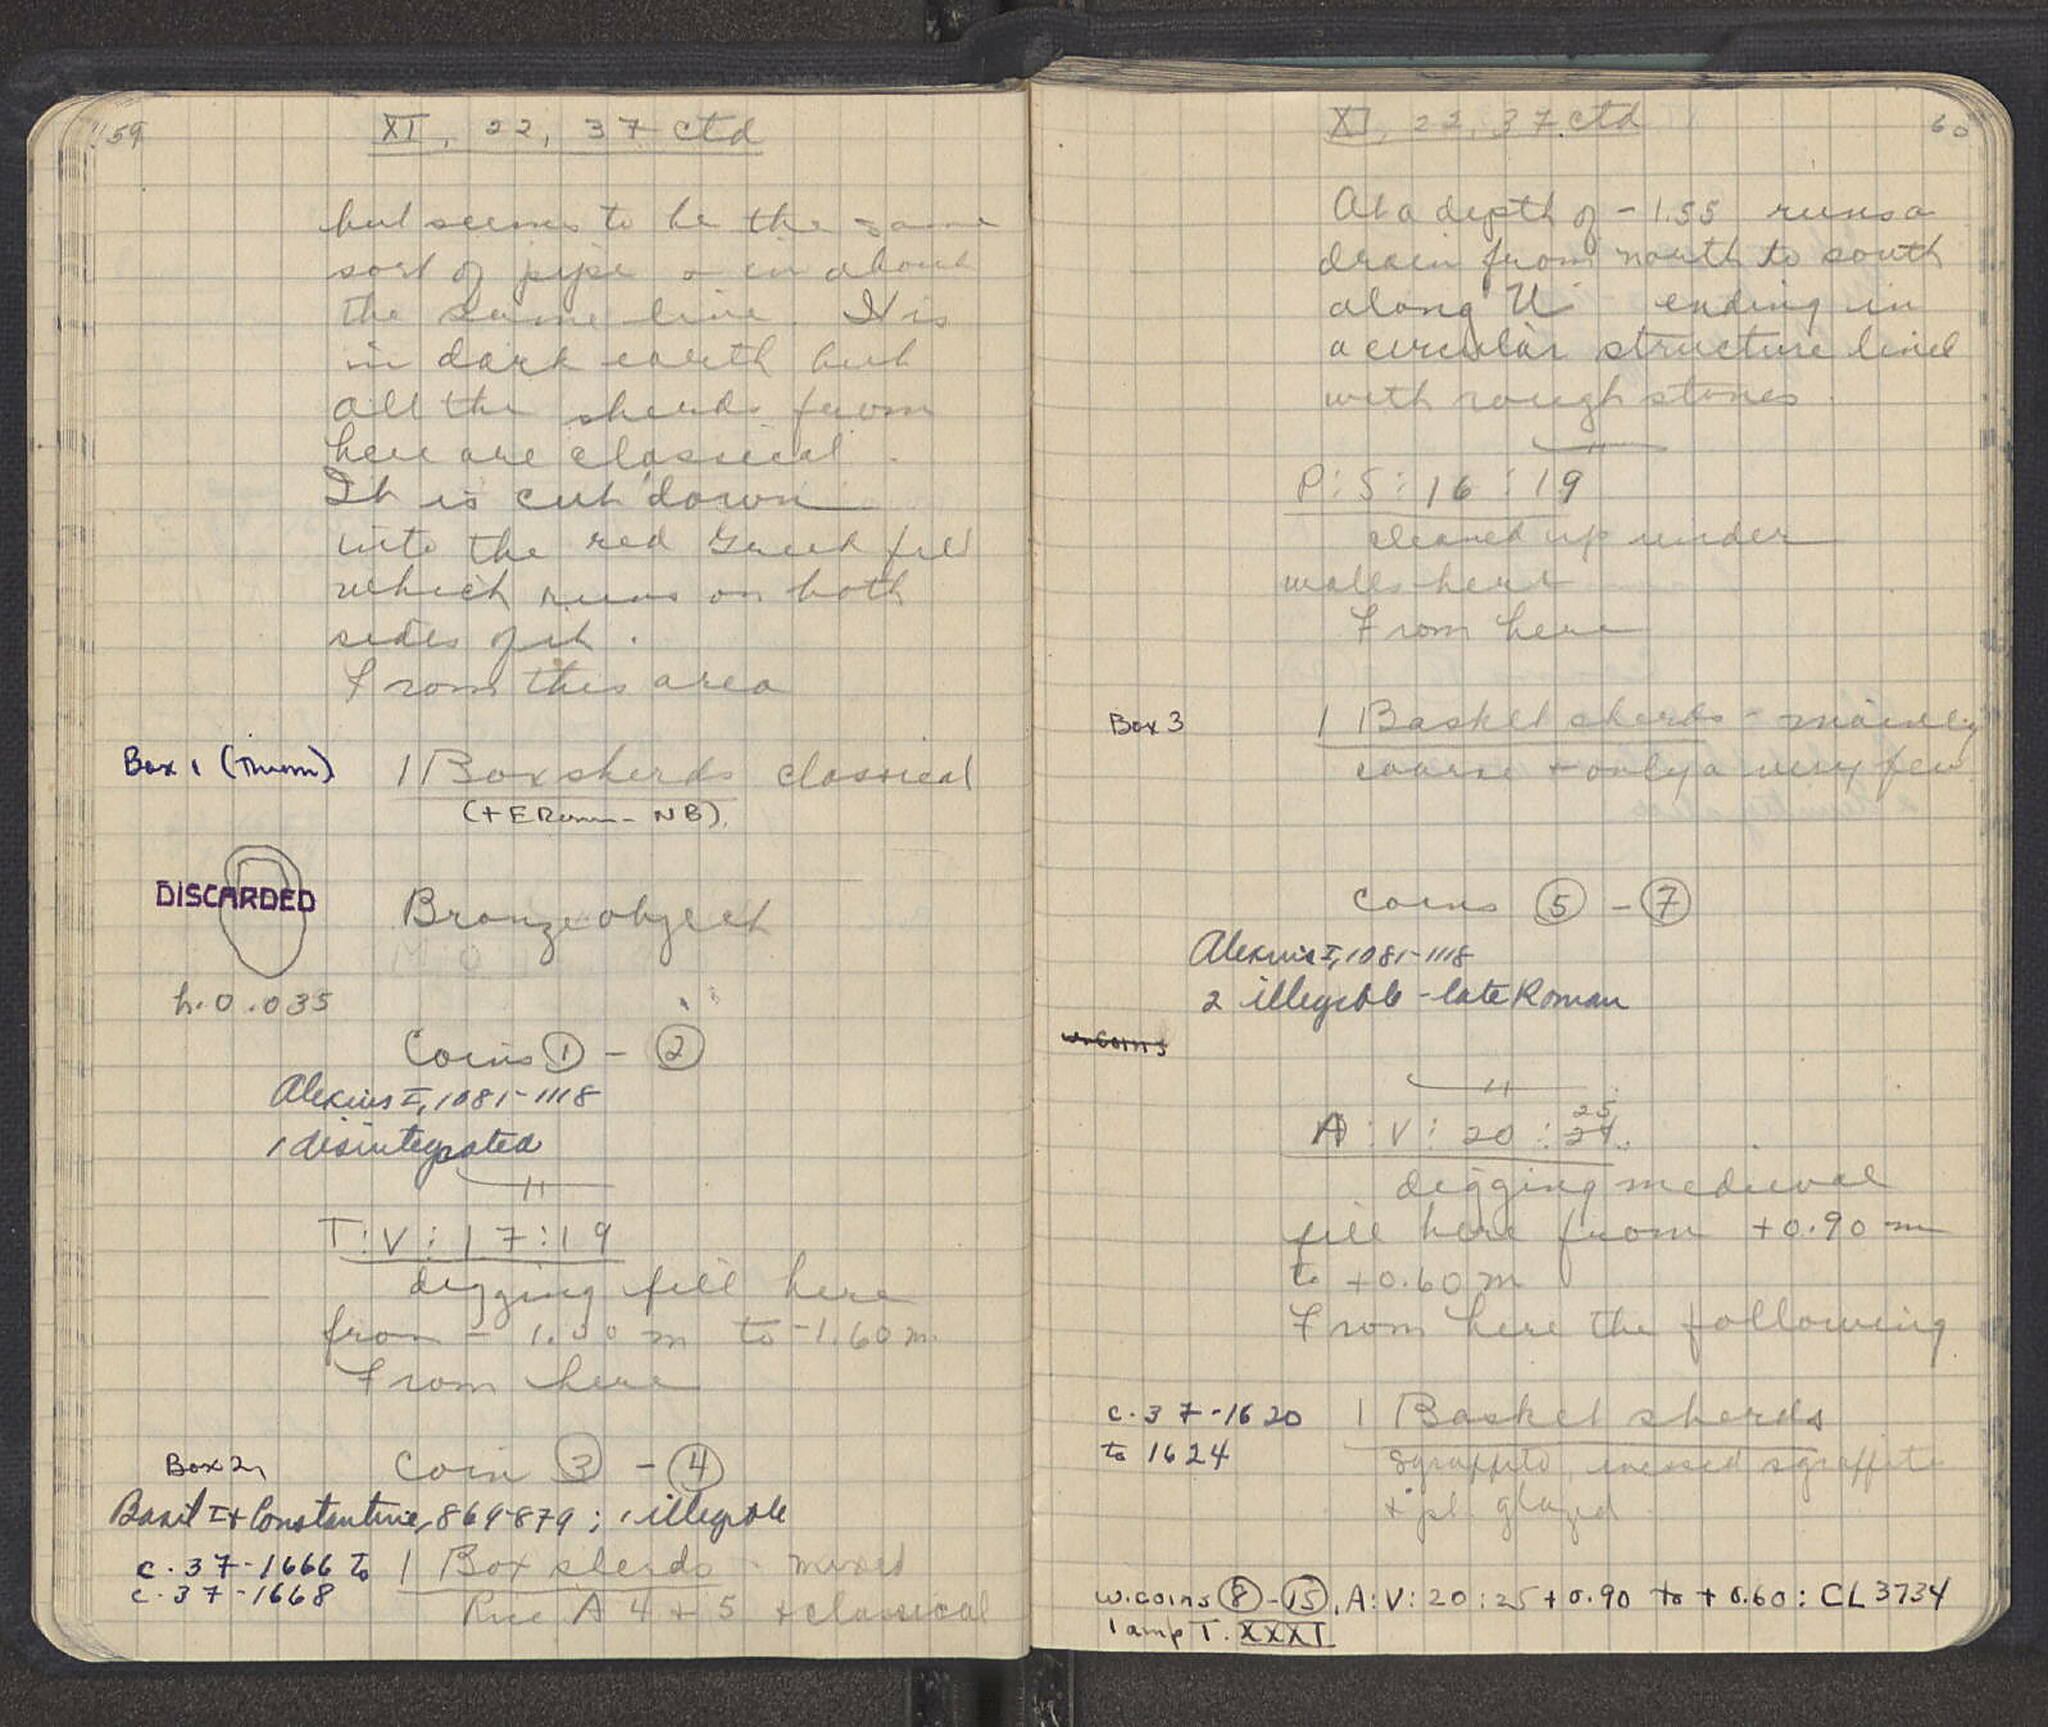 59
XI, 22, 37 ctd
but seems to be the same
sort of pipe & in about
the same line. It is
in dark earth but
all the sherds from
here are classical.
It is cut down
into the red Greek fill
which runs on both
sides of it.
From this area
Box 1 (Thurm) 1 Box sherds classical
(+ E Rom - NB).
DISCARDED
Bronze object
h. 0.035
Coins 1 - 2
Alexius I, 1081-1118
1 disintegrated
T:V:17:19
digging fill here
from - 1.00 m to -1.60 m.
From here
Box 2 Coin 3 - 4
Basil I + Constantine, 869-879; 1 illegible
c.37-1666 to 1 Box sherds - mixed
c.37-1668
Rice A 4 + 5 + classical
60
XI, 22, 37 ctd
At a depth of -1.55 runs a
drain from north to south
along U ending in
a circular structure lined
with rough stones.
P:S:16:19
cleaned up under
walls here
From here
Box 3 1 Basket sherds - mainly
coarse + only a very few
Coins 5 - 7
Alexius I, 1081-1118
2 illegible - late Roman
w. Coins
A:V:20:24. 25
digging medieval
fill here from +0.90 m
to +0.60 m
From here the following
c.37-1620 1 Basket sherds
to 1624
Sgraffito, incised sgraffito
+ pl. glazed
w. coins 8 - 15, A:V:20:25 + 0.90 to + 0.60: CL 3734
lamp T. XXXI